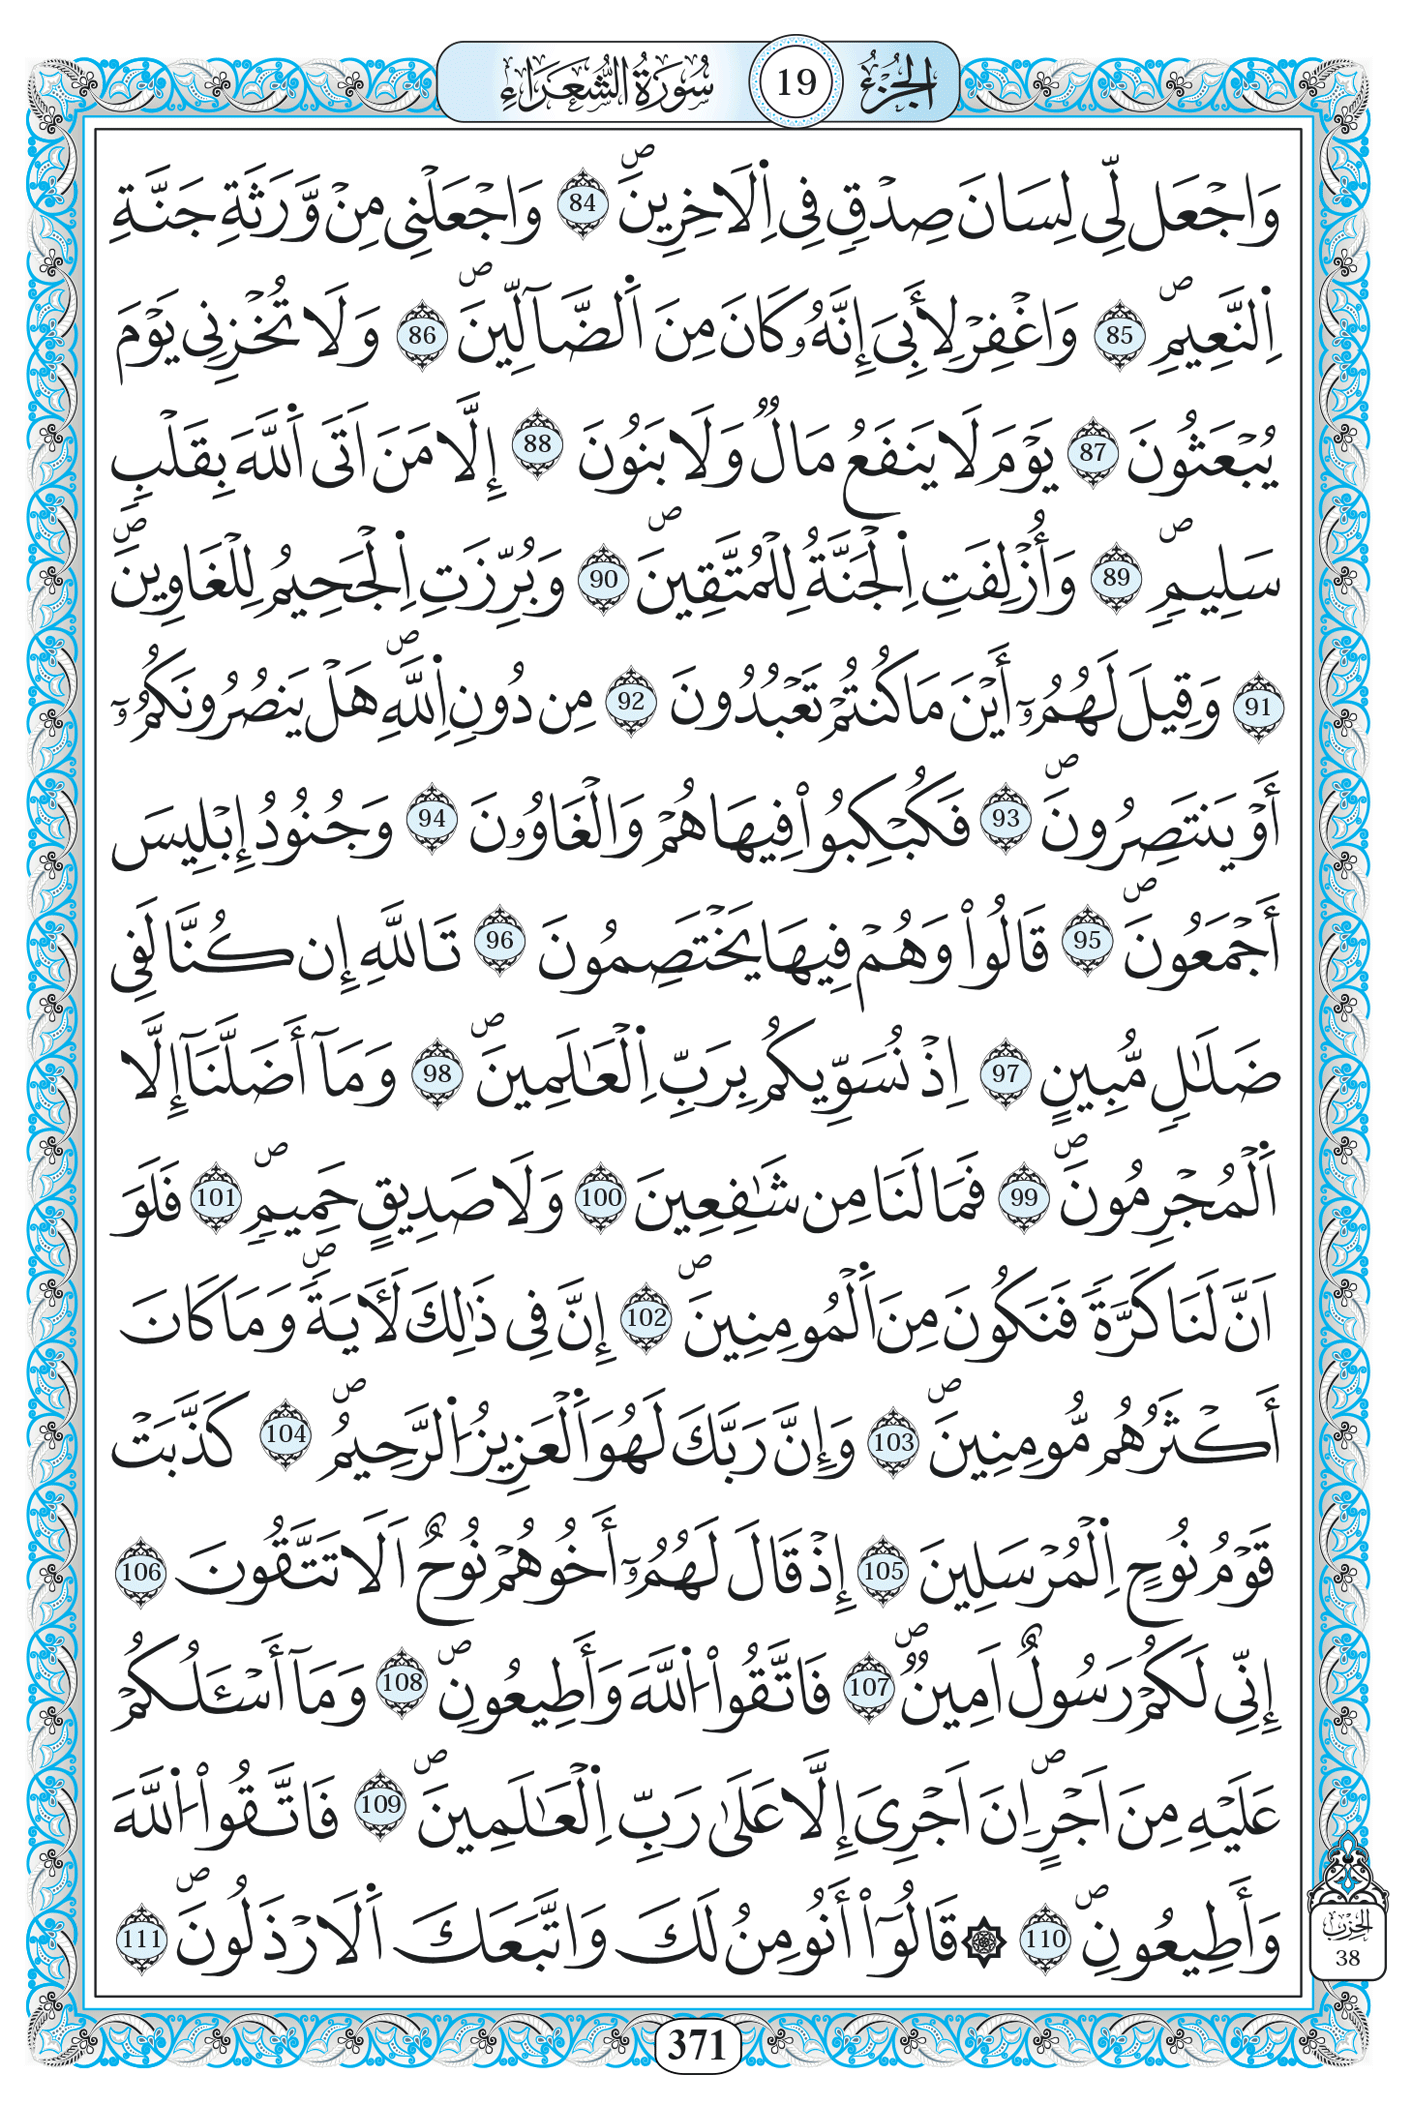 الجزء 19 سورة الشعراء
وَاجْعَل لِّي لِسَانَ صِدْقٖ فِي اِ۬لَاخِرِينَۖ 84 وَاجْعَلْنِي مِنْ وَّرَثَةِ جَنَّةِ
اِ۬لنَّعِيمِۖ 85 وَاغْفِرْ لِأَبِيَ إِنَّهُۥ كَانَ مِنَ اَ۬لضَّآلِّينَۖ 86 وَلَا تُخْزِنِي يَوْمَ
يُبْعَثُونَ 87 يَوْمَ لَا يَنفَعُ مَالٞ وَلَا بَنُونَ 88 إِلَّا مَنَ اَتَى اَ۬للَّهَ بِقَلْبٖ
سَلِيمٖۖ 89 وَأُزْلِفَتِ اِ۬لْجَنَّةُ لِلْمُتَّقِينَۖ 90 وَبُرِّزَتِ اِ۬لْجَحِيمُ لِلْغَاوِينَۖ
91 وَقِيلَ لَهُمُۥٓ أَيْنَ مَا كُنتُمْ تَعْبُدُونَ 92 مِن دُونِ اِ۬للَّهِۖ هَلْ يَنصُرُونَكُمُۥٓ
أَوْ يَنتَصِرُونَۖ 93 فَكُبْكِبُواْ فِيهَا هُمْ وَالْغَاوُۥنَ 94 وَجُنُودُ إِبْلِيسَ
أَجْمَعُونَۖ 95 قَالُواْ وَهُمْ فِيهَا يَخْتَصِمُونَ 96 تَاللَّهِ إِن كُنَّا لَفِي
ضَلَٰلٖ مُّبِينٍ 97 اِذْ نُسَوِّيكُم بِرَبِّ اِ۬لْعَٰلَمِينَۖ 98 وَمَآ أَضَلَّنَآ إِلَّا
اَ۬لْمُجْرِمُونَۖ 99 فَمَا لَنَا مِن شَٰفِعِينَ 100 وَلَا صَدِيقٍ حَمِيمٖۖ 101 فَلَوَ
اَنَّ لَنَا كَرَّةٗ فَنَكُونَ مِنَ اَ۬لْمُومِنِينَۖ 102 إِنَّ فِي ذَٰلِكَ لَأٓيَةٗۖ وَمَا كَانَ
أَكْثَرُهُم مُّومِنِينَۖ 103 وَإِنَّ رَبَّكَ لَهُوَ اَ۬لْعَزِيزُ اُ۬لرَّحِيمُۖ 104 كَذَّبَتْ
قَوْمُ نُوحٍ اِ۬لْمُرْسَلِينَ 105 إِذْ قَالَ لَهُمُۥٓ أَخُوهُمْ نُوحٌ اَلَا تَتَّقُونَ 106
إِنِّي لَكُمْ رَسُولٌ اَمِينٞۖ 107 فَاتَّقُواْ اُ۬للَّهَ وَأَطِيعُونِۖ 108 وَمَآ أَسْـَٔلُكُمْ
عَلَيْهِ مِنَ اَجْرٍۖ اِنَ اَجْرِيَ إِلَّا عَلَىٰ رَبِّ اِ۬لْعَٰلَمِينَۖ 109 فَاتَّقُواْ اُ۬للَّهَ
وَأَطِيعُونِۖ 110 ۞قَالُوٓاْ أَنُومِنُ لَكَ وَاتَّبَعَكَ اَ۬لَارْذَلُونَۖ 111
الحزب
38
371